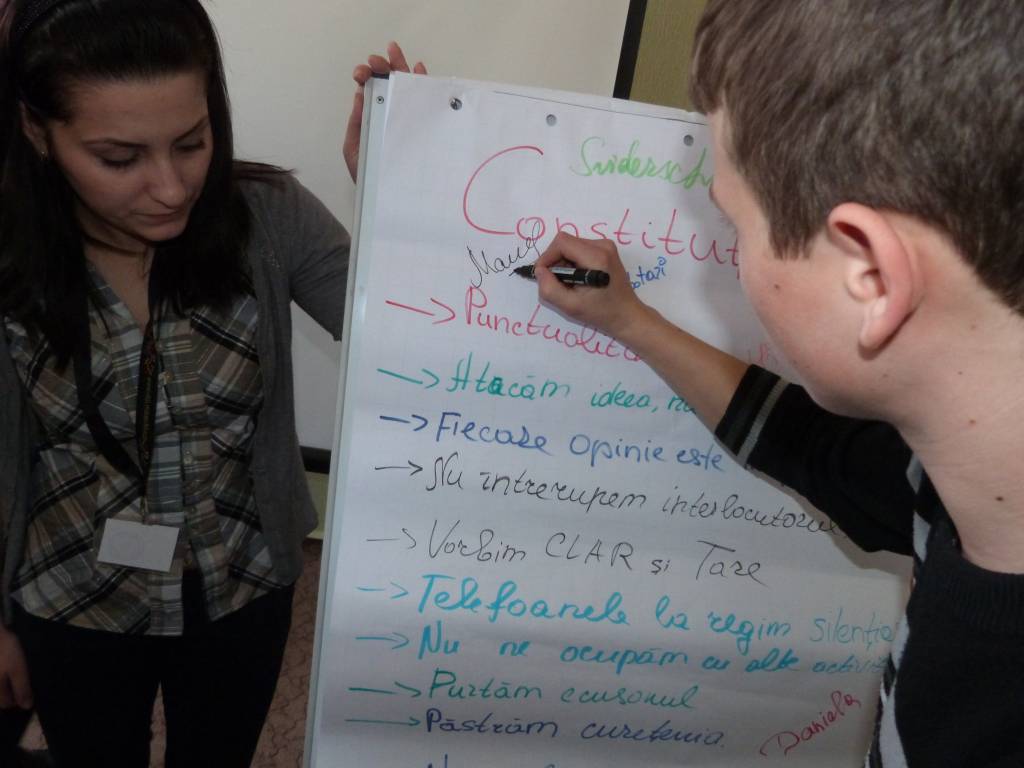 Constituț
→ Punctualita
→ Atacăm ideea, nu
→ Fiecare opinie este
→ Nu întrerupem interlocutorul
→ Vorbim CLAR și Tare
→ Telefoanele la regim silenția
→ Nu ne ocupăm cu alte activi
→ Purtăm ecusonul
→ Păstrăm curățenia.
Daniela